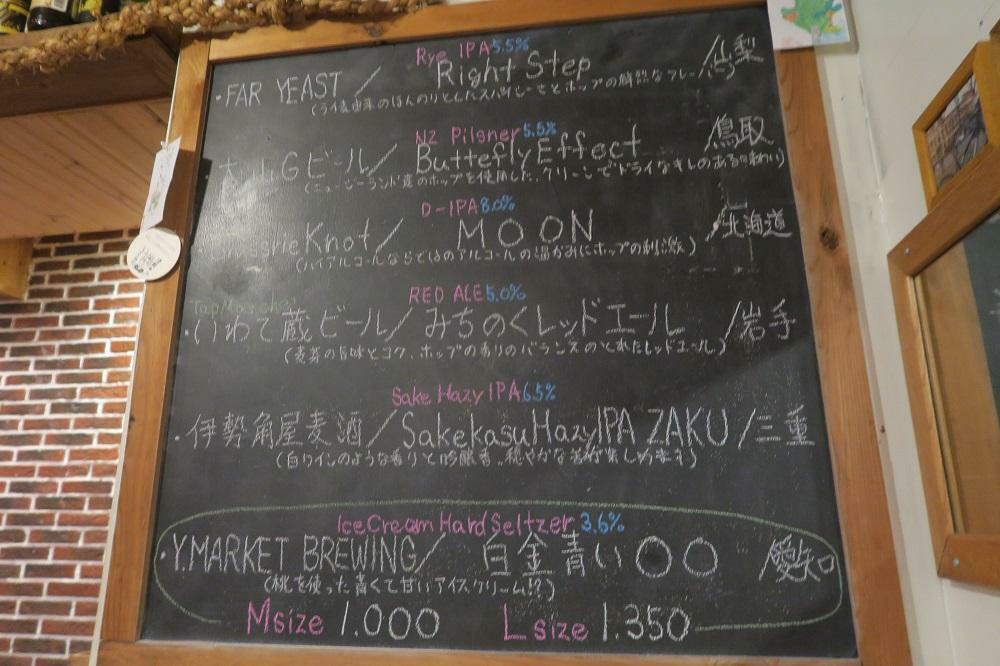 Rye IPA 5.5%
・FAR YEAST / Right Step /山梨
(ライ麦由来のほんのりとしたスパイシーさとホップの鮮烈なフレー
NZ Pilsner 5.5%
大山Gビール/ Butterfly Effect 鳥取
(ニュージーランド産のホップを使用した、クリーンでドライなキレのある味わい)
D-IPA 8.0%
Knot/ MOON /北海道
(ハイアルコールならではのアルコールの温かみにホップの刺激)
RED ALE 5.0%
・いわて蔵ビール/みちのくレッドエール /岩手
(麦芽の旨味とコク、ホップの香りのバランスのとれたレッドエール)
Sake Hazy IPA 6.5%
・伊勢角屋麦酒/SakekasuHazyIPA ZAKU /三重
(白ワインのような香りと吟醸香、穏やかな苦味が楽しめます)
IceCream Hard Seltzer 3.6%
・Y.MARKET BREWING/ 白金青い〇〇 /愛知
(桃を使った青くて甘いアイスクリーム!?)
Msize 1.000 Lsize 1.350